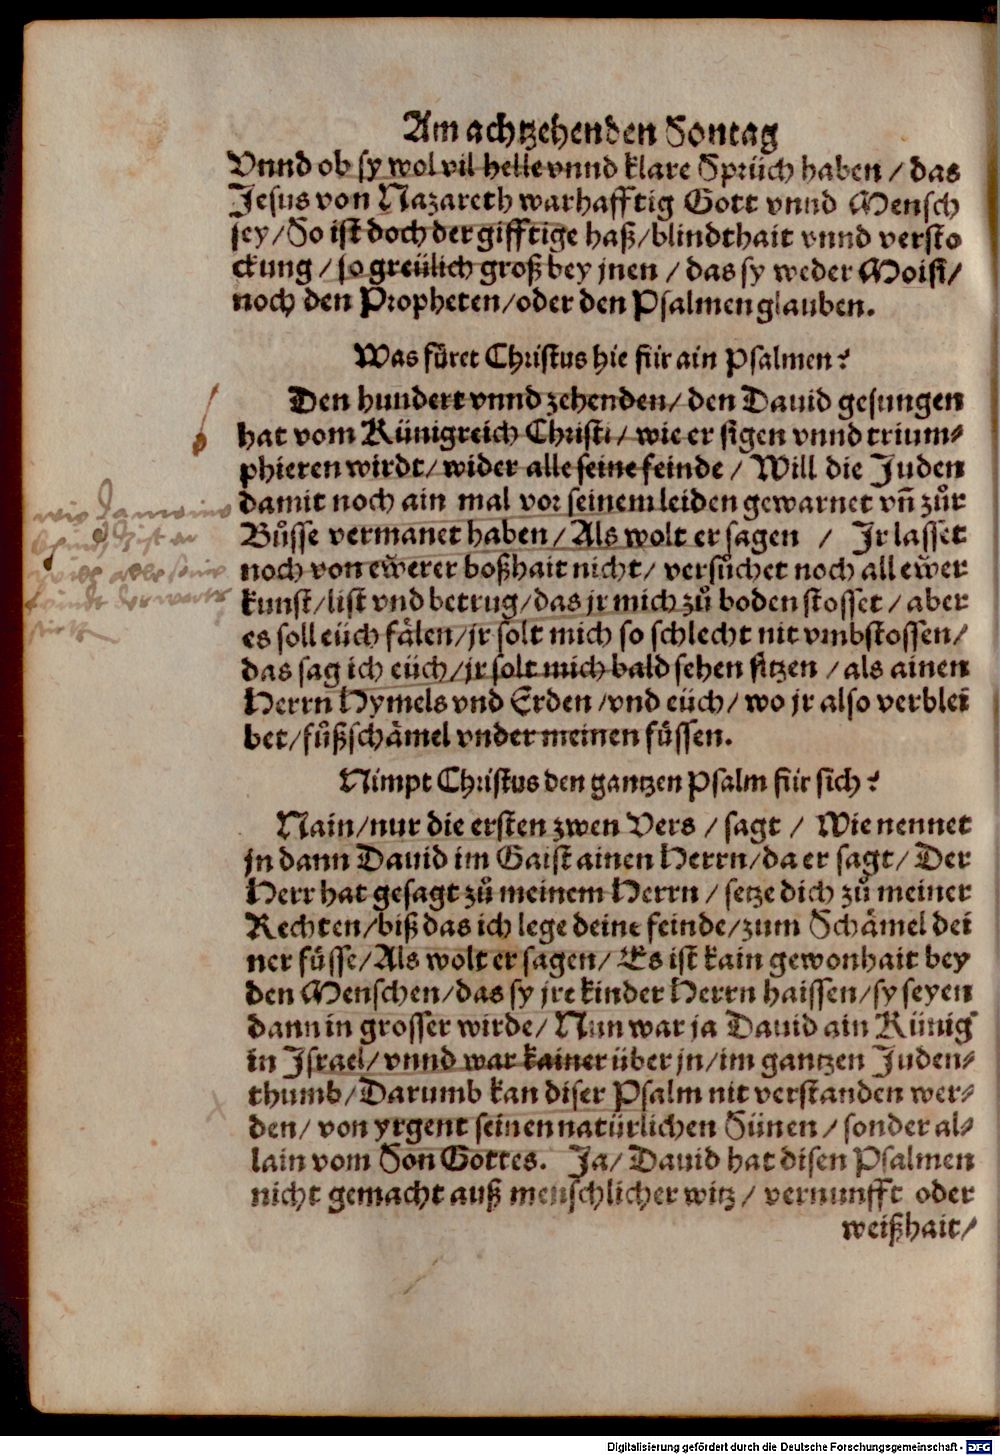 Am achtzehenden Sontag
Vnnd ob sy wol vil helle vnnd klare Sprüch haben / das
Jesus von Nazareth warhafftig Gott vnnd Mensch
sey / So ist doch der gifftige haß / blindthait vnnd versto
ckung / so greülich groß bey jnen / das sy weder Moisi /
noch den Propheten / oder den Psalmen glauben.
Was füret Christus hie für ain Psalmen?
Den hundert vnnd zehenden / den Dauid gesungen
hat vom Künigreich Christi / wie er sigen vnnd trium⸗
phieren wirdt / wider alle seine feinde / Will die Juden
damit noch ain mal vor seinem leiden gewarnet vñ zůr
Bůsse vermanet haben / Als wolt er sagen / Jr lasset
noch von ewerer boßhait nicht / versůchet noch all ewer
kunst / list vnd betrug / das jr mich zů boden stosset / aber
es soll eüch fälen / jr solt mich so schlecht nit vmbstossen /
das sag ich eüch / jr solt mich bald sehen sitzen / als ainen
Herrn Hymels vnd Erden / vnd eüch / wo jr also verblei
bet / fůßschämel vnder meinen füssen.
Nimpt Christus den gantzen Psalm für sich?
Nain / nur die ersten zwen Vers / sagt / Wie nennet
jn dann Dauid im Gaist ainen Herrn / da er sagt / Der
Herr hat gesagt zů meinem Herrn / setze dich zů meiner
Rechten / biß das ich lege deine feinde / zum Schämel dei
ner füsse / Als wolt er sagen / Es ist kain gewonhait bey
den Menschen / das sy jre kinder Herrn haissen / sy seyen
dann in grosser wirde / Nun war ja Dauid ain Künig
in Israel / vnnd war kainer über jn / im gantzen Juden⸗
thumb / Darumb kan diser Psalm nit verstanden wer⸗
den / von yrgent seinen natürlichen Sünen / sonder al⸗
lain vom Son Gottes. Ja / Dauid hat disen Psalmen
nicht gemacht auß menschlicher witz / vernunfft oder
weißhait /
alle seine
feinde
Digitalisierung gefördert durch die Deutsche Forschungsgemeinschaft - DFG